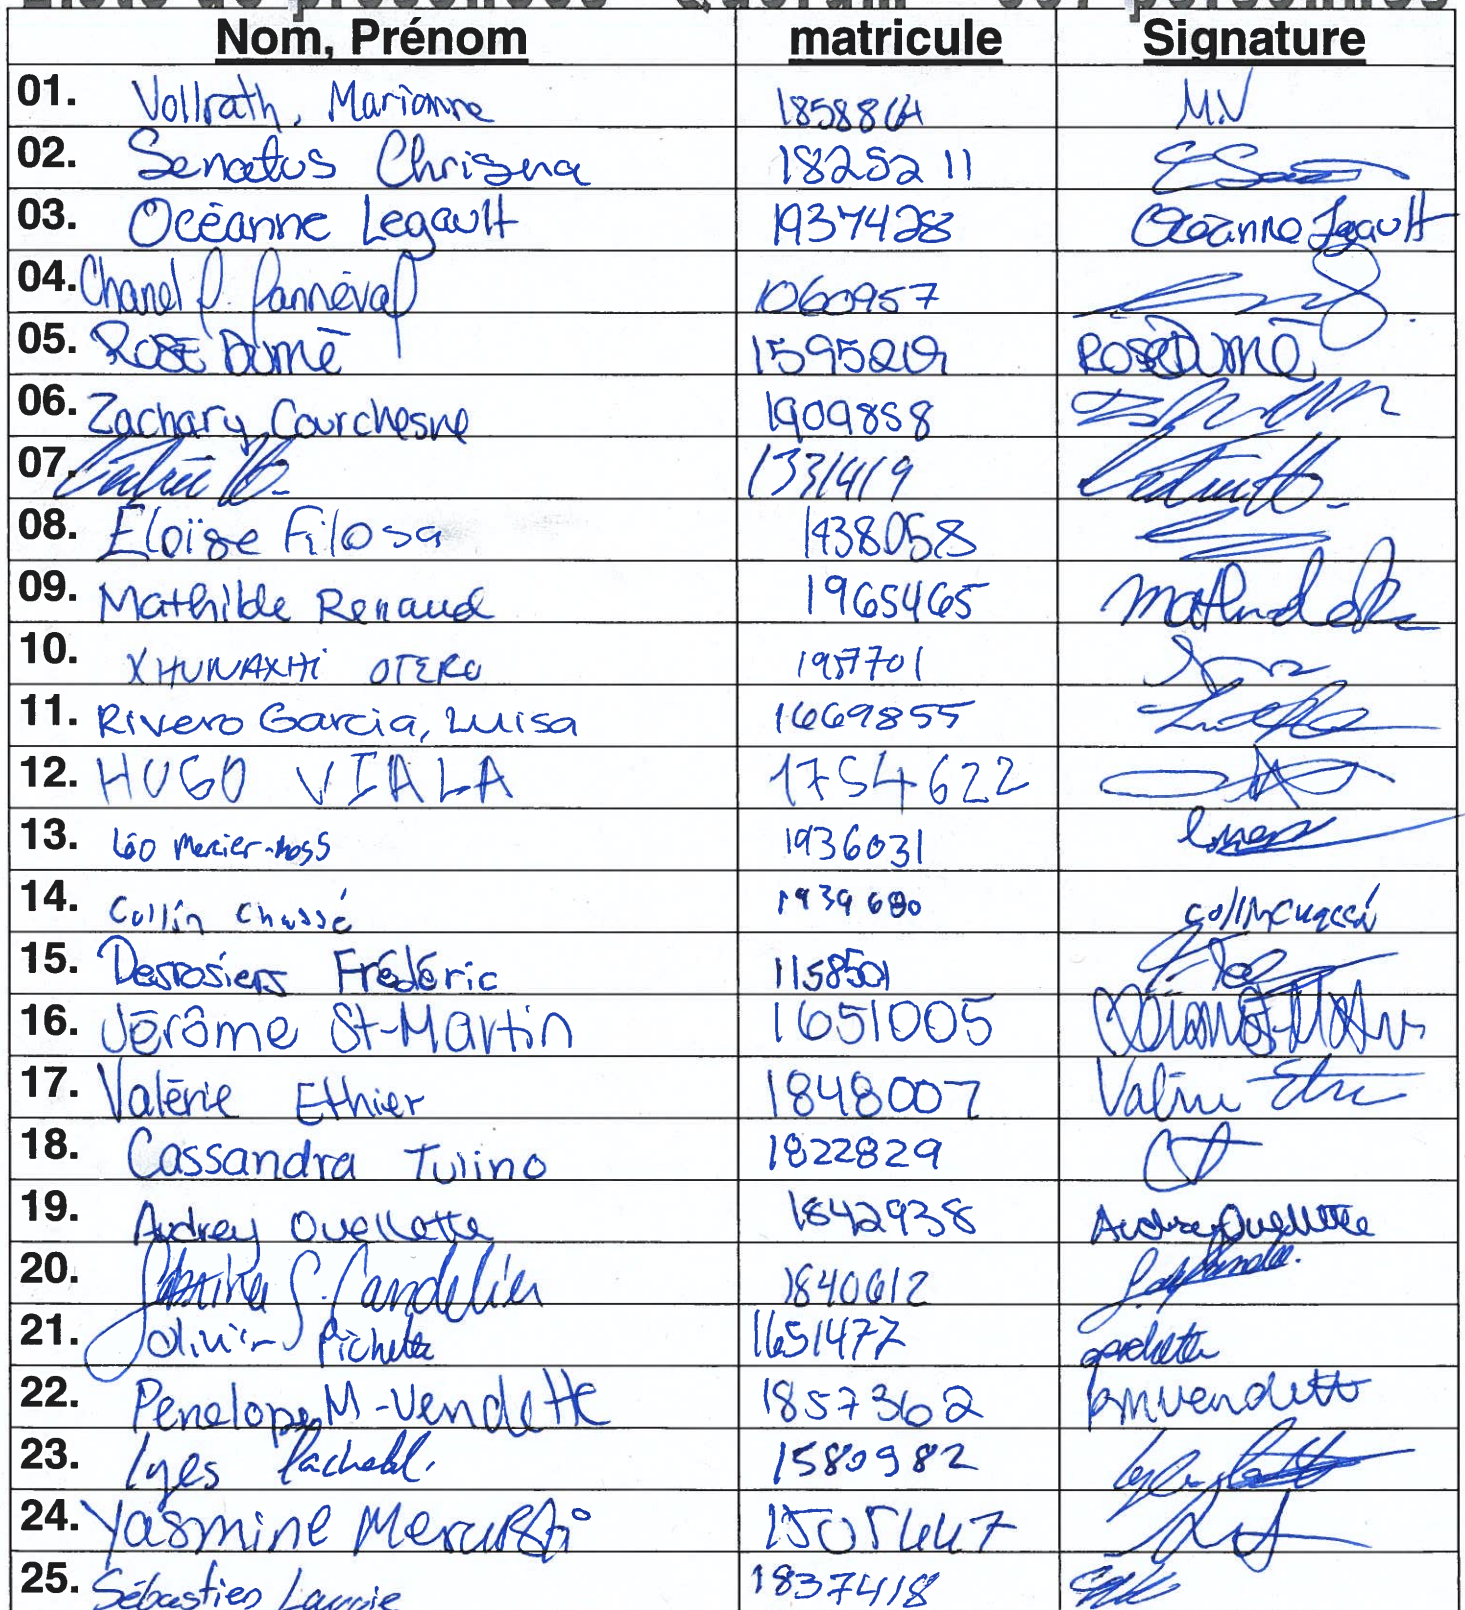 Liste de présences Quorum 367 personnes
Nom, Prénom matricule Signature
01. Vollrath, Marianne 1858864 M.V
02. Senatus Chrisna 1825211
03. Océanne Legault 1937428 Océanne Legault
04. Chanel P. 1060957
05. ROSE DUMÉ 1595219 ROSE DUMÉ
06. Zachary Courchesne 1909858
07. 1331419
08. Éloïse Filosa 1438058
09. Mathilde Renaud 1965465
10. XHUNAXHI OTERO 1957701
11. Rivero Garcia, Luisa 1669855
12. HUGO VIALA 1754622
13. Léo Mercier-Ross 1936031
14. Collin Chassé 1939680
15. Desrosiers Frédéric 1158501
16. Jérôme St-Martin 1651005
17. Valérie Ethier 1848007
18. Cassandra Tulino 1822829
19. Audrey Ouellette 1842938 Audrey Ouellette
20. 1840612
21. Olivier Pichette 1651477
22. Penelope M-Vendette 1857362 pmvendette
23. Lyes 1580982
24. Yasmine 1505447
25. Sébastien 1837418